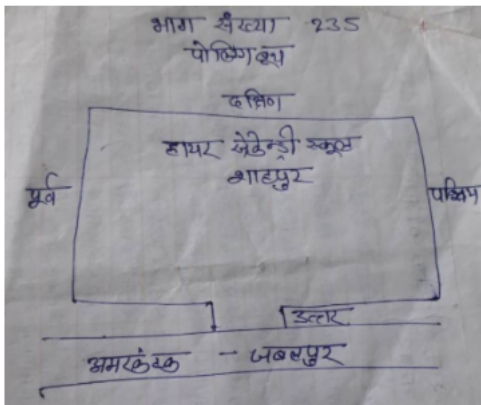 भाग संख्या 235
पोलिंग बूथ
दक्षिण
हायर सेकेन्ड्री स्कूल
शाहपुर
पूर्व
पश्चिम
उत्तर
अमरकंटक - जबलपुर